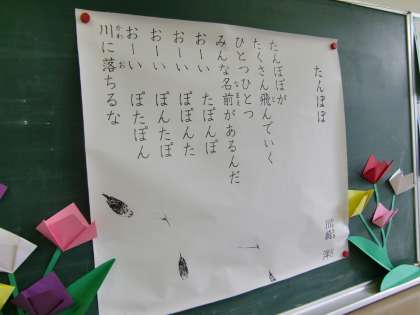 たんぽぽ
川崎 洋
たんぽぽが
たくさん飛んでいく
ひとつひとつ
みんな名前があるんだ
おーい たぽんぽ
おーい ぽぽんた
おーい ぽんたぽ
おーい ぽたぽん
川に落ちるな